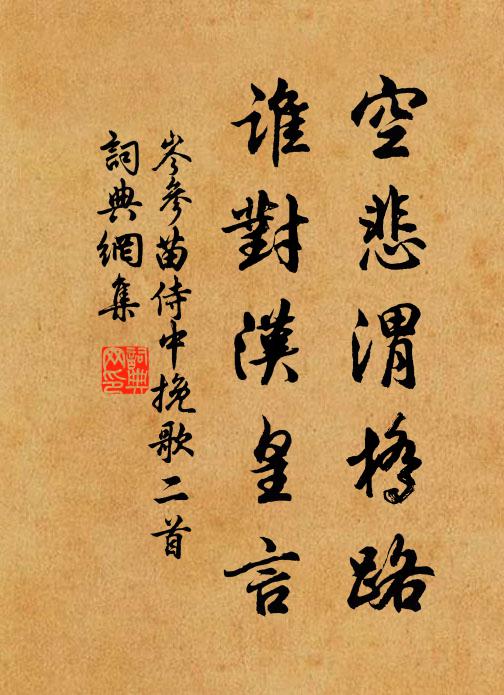 空悲渭橋路
誰對漢皇言
岑參苗侍中挽歌二首
詞典網集
詞典網印